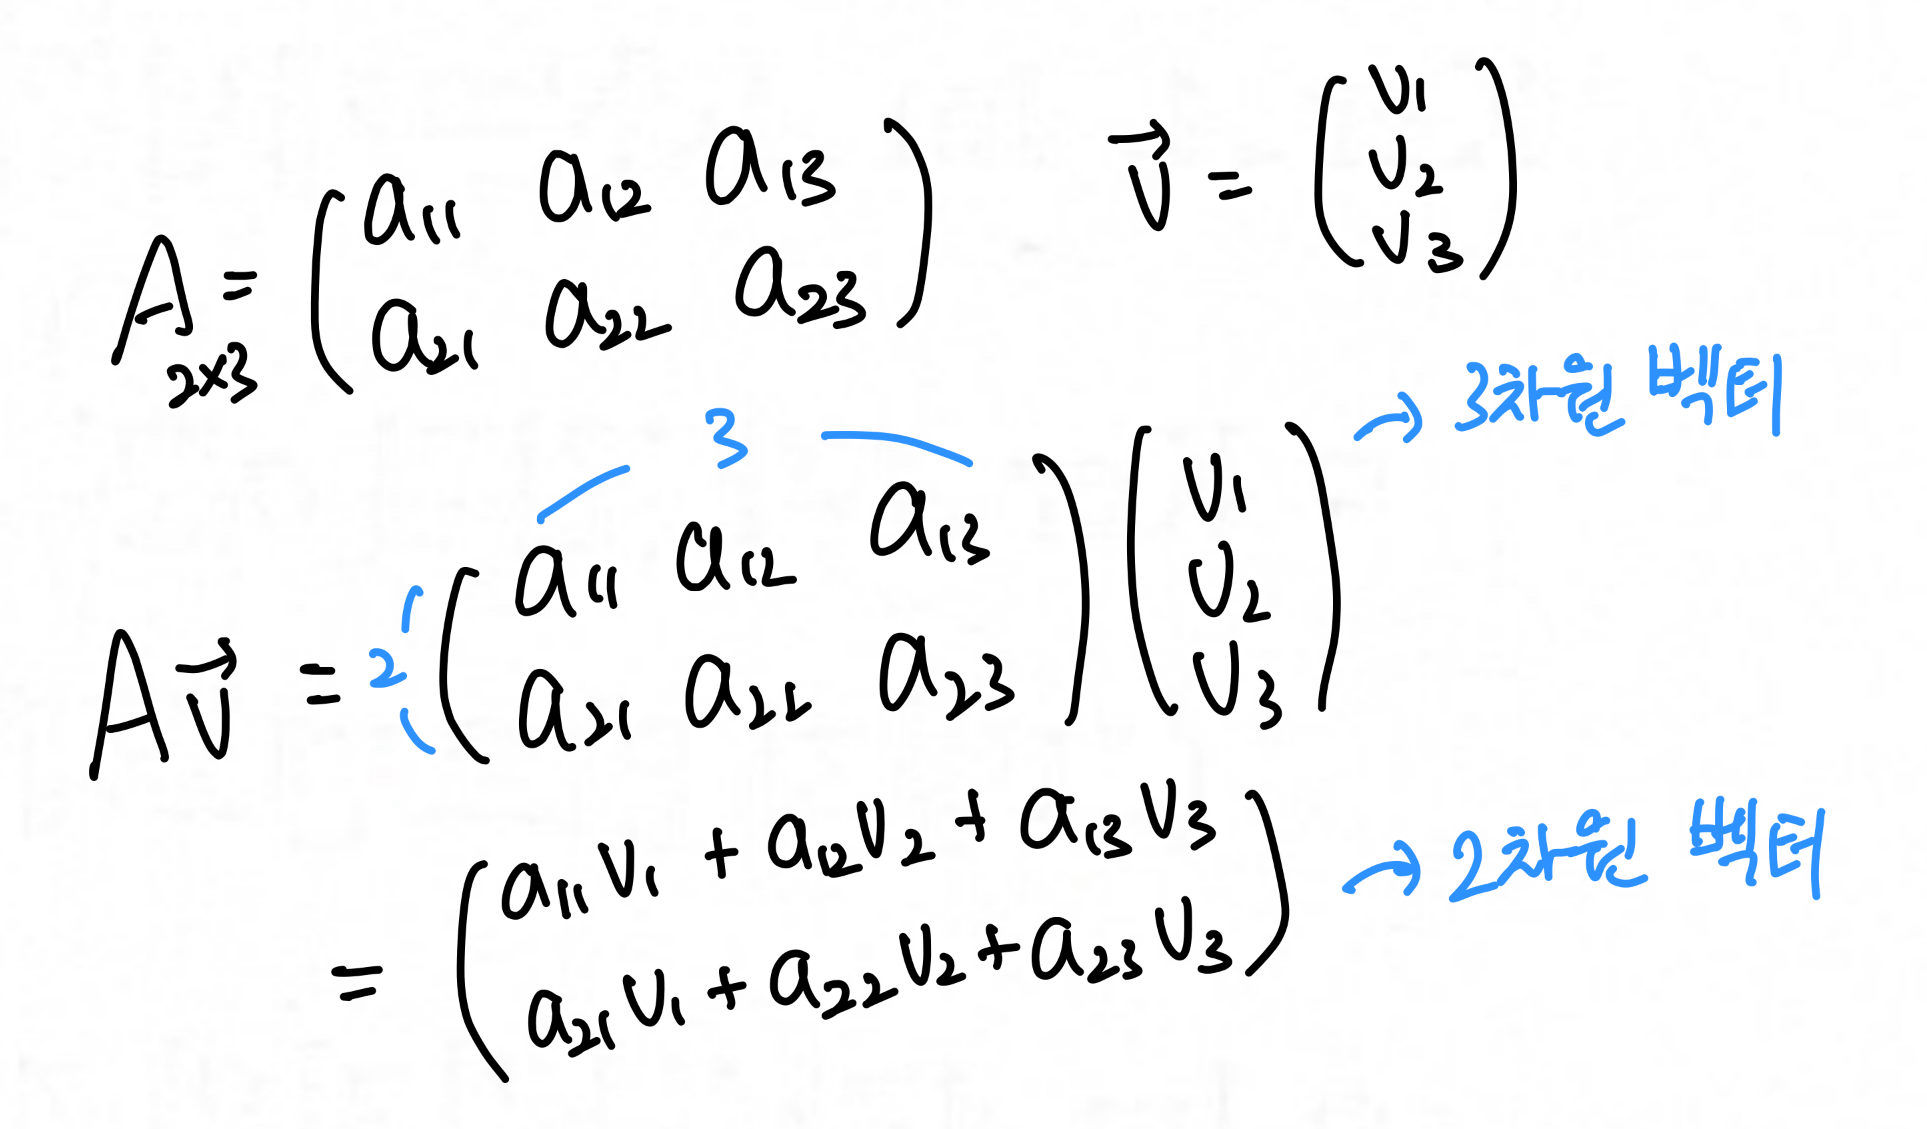 A₂ₓ₃ = ( a₁₁ a₁₂ a₁₃ ; a₂₁ a₂₂ a₂₃ )
v⃗ = ( v₁ ; v₂ ; v₃ )
3
→ 3차원 벡터
Av⃗ = 2 ( a₁₁ a₁₂ a₁₃ ; a₂₁ a₂₂ a₂₃ ) ( v₁ ; v₂ ; v₃ )
= ( a₁₁v₁ + a₁₂v₂ + a₁₃v₃ ; a₂₁v₁ + a₂₂v₂ + a₂₃v₃ )
→ 2차원 벡터